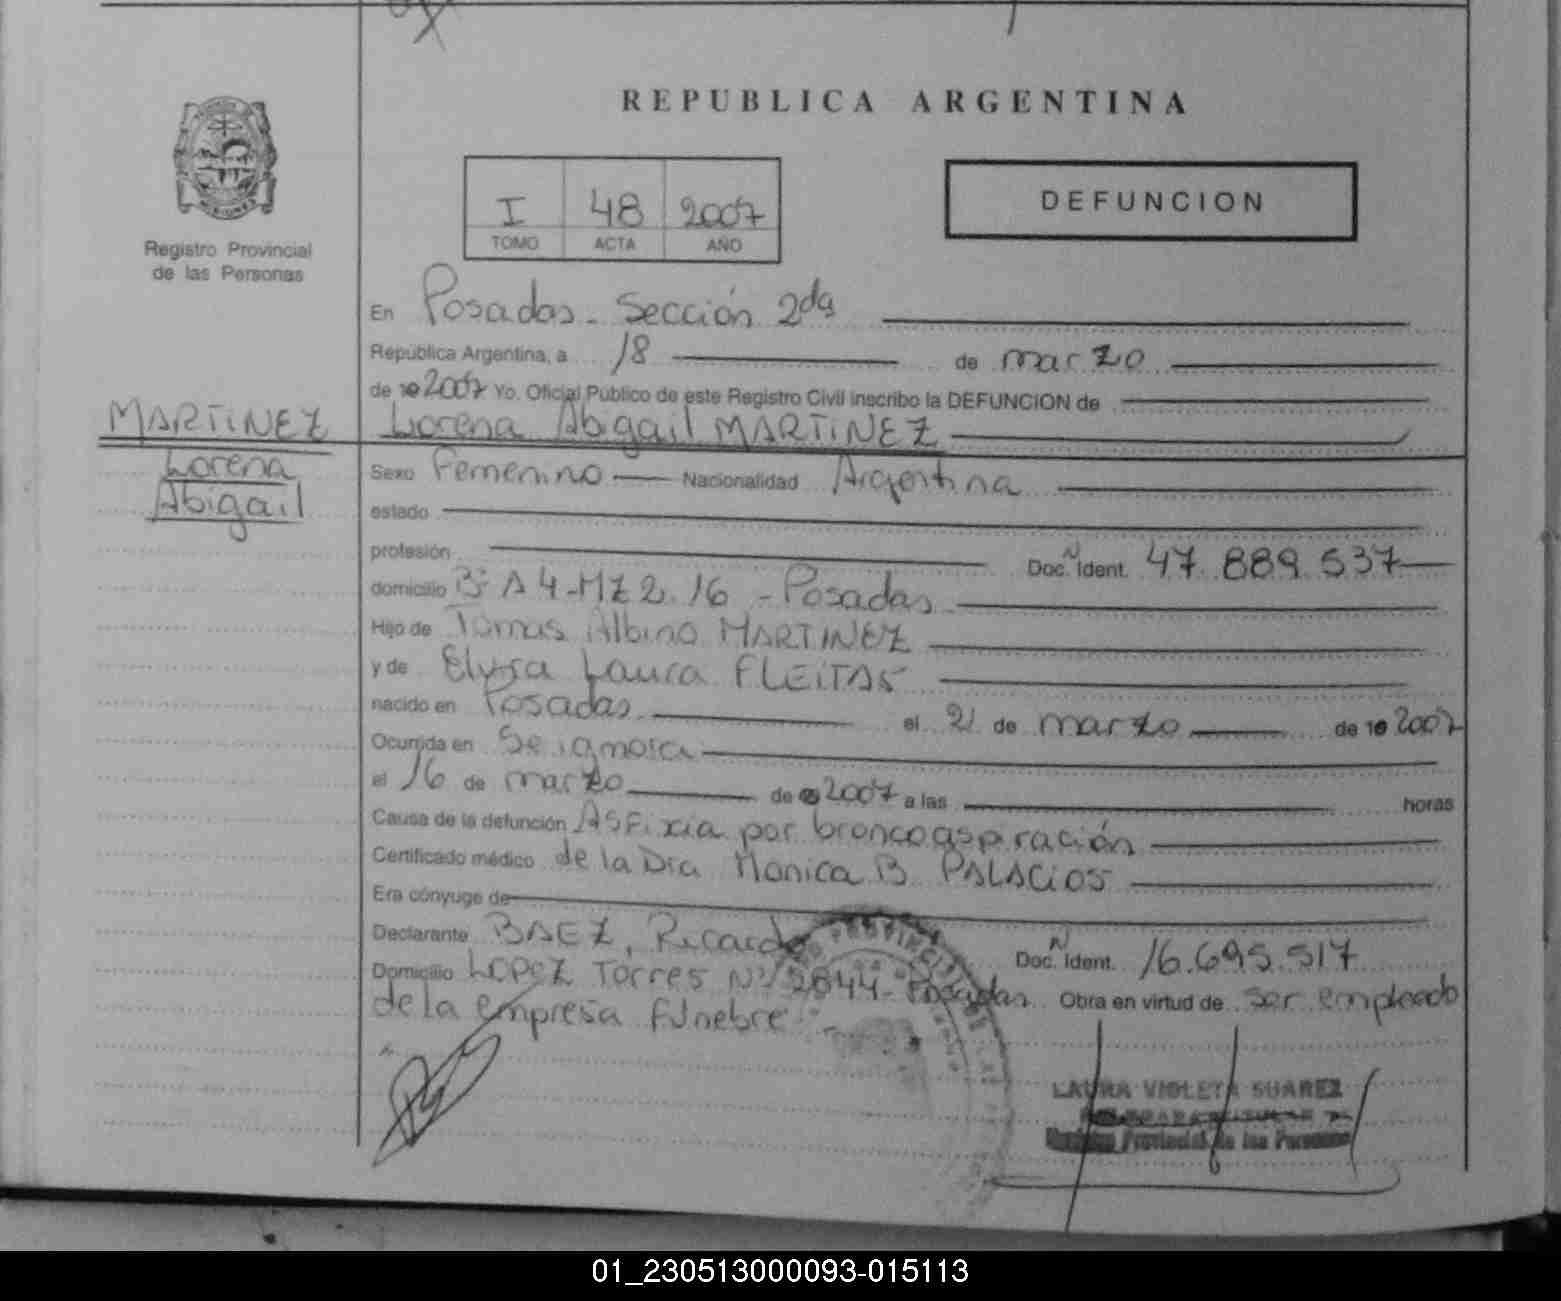 REPUBLICA ARGENTINA
Registro Provincial
de las Personas
I 48 2007
TOMO ACTA AÑO
DEFUNCION
En Posadas - Sección 2da
República Argentina, a 18 de marzo
de 2007 Yo. Oficial Público de este Registro Civil inscribo la DEFUNCION de
MARTINEZ
Lorena
Abigail
Lorena Abigail MARTINEZ
Sexo Femenino Nacionalidad Argentina
estado
profesión Doc. N Ident. 47.889.537
domicilio Bº A4-MZ 2.16 - Posadas
Hijo de Tomas Albino MARTINEZ
y de Elysa Laura FLEITAS
nacido en Posadas el 2 de marzo de 2007
Ocurrida en Se ignora
el 16 de marzo de 2007 a las horas
Causa de la defunción Asfixia por broncoaspiración
Certificado médico de la Dra Monica B PALACIOS
Era cónyuge de
Declarante BAEZ, Ricardo Doc. N Ident. 16.695.517
Domicilio LOPEZ Torres Nº 2844 - Posadas Obra en virtud de ser empleado
de la empresa fúnebre
LAURA VIOLETA SUAREZ
Provincial de las Personas
01_230513000093-015113